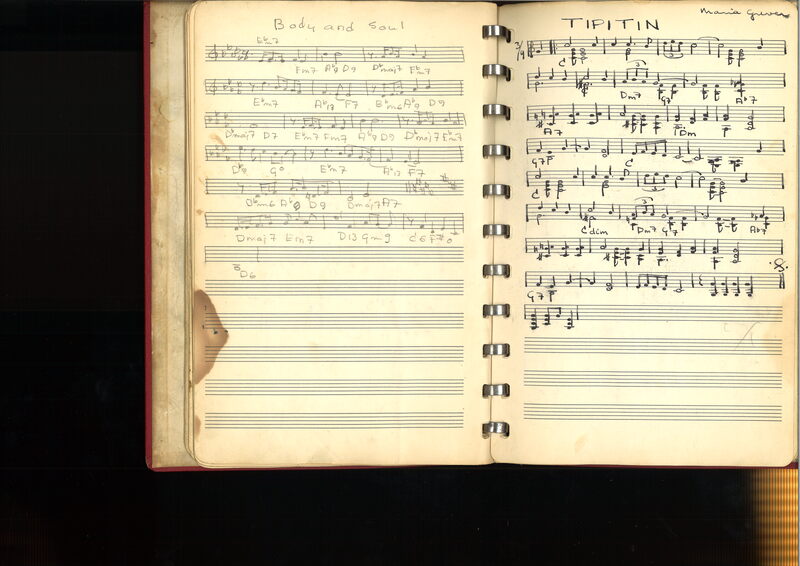 Body and Soul
E♭m7
E♭m7 A♭9 D9 D♭maj7 F♭m7
E♭m7 A♭13 F7 B♭m6 A♭9 D9
D♭maj7 D7 E♭m7 Fm7 A♭9 D9 D♭maj7 E♭m7
D♭9 G° E♭m7 A♭13 F7
B♭m6 A♭9 D9 Dmaj7 A7
Dmaj7 Em7 D13 Gm9 C6 F#°
D6
Maria Grever
TIPITIN
C
Dm7 G7 A♭7
A7 Dm
G7 C
C
Cdim Dm7 G7 A♭7
G7